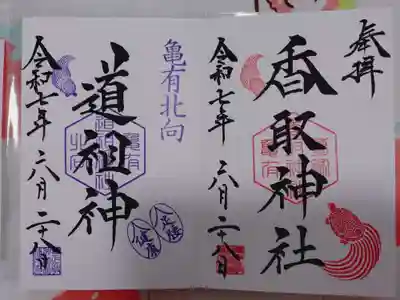 奉拝
香取神社
令和七年六月二十八日
亀有北向
道祖神
令和七年六月二十八日
足腰
健康
亀有